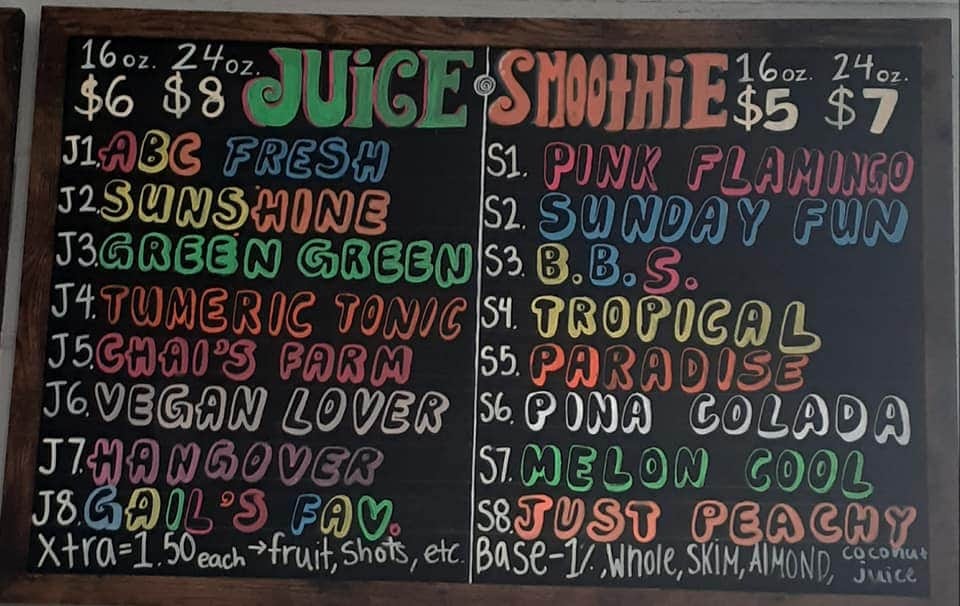 16 oz. 24 oz. JUiCE
$6 $8
J1. ABC FRESH
J2. SUNSHINE
J3. GREEN GREEN
J4. TUMERIC TONIC
J5. CHAI'S FARM
J6. VEGAN LOVER
J7. HANGOVER
J8. GAIL'S FAV.
Xtra = 1.50 each → fruit, shots, etc.
SMOOtHiE 16 oz. 24 oz.
$5 $7
S1. PINK FLAMINGO
S2. SUNDAY FUN
S3. B.B.S.
S4. TROPICAL
S5. PARADISE
S6. PINA COLADA
S7. MELON COOL
S8. JUST PEACHY
Base - 1%, Whole, SKIM, AlMOND, coconut
juice